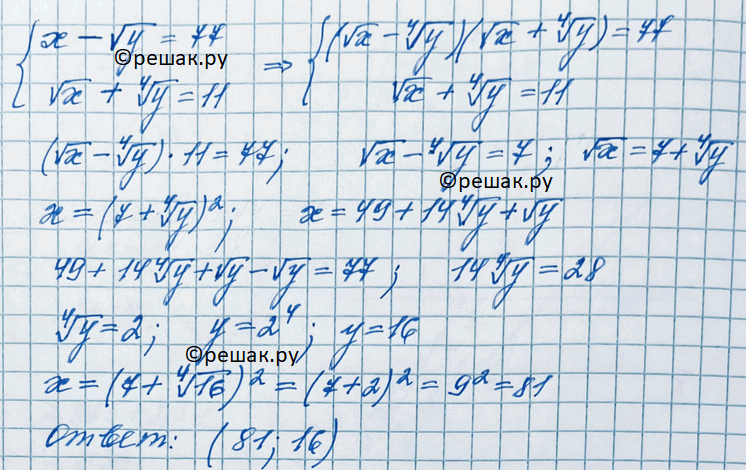 { x − √y = 77 => { (√x − ⁴√y)(√x + ⁴√y) = 77
©решак.ру
√x + ⁴√y = 11 √x + ⁴√y = 11
(√x − ⁴√y) · 11 = 77; √x − ⁴√y = 7; √x = 7 + ⁴√y
©решак.ру
x = (7 + ⁴√y)²; x = 49 + 14⁴√y + √y
49 + 14⁴√y + √y − √y = 77; 14⁴√y = 28
⁴√y = 2; y = 2⁴; y = 16
©решак.ру
x = (7 + ⁴√16)² = (7 + 2)² = 9² = 81
Ответ: (81; 16)